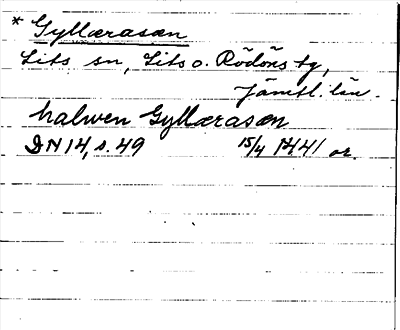 * Gyllærasæn
Lits sn, Lits o. Rödöns tg,
Jämtl. län.
halwen Gyllærasæn
DN 14, s. 49 15/4 1441 or.